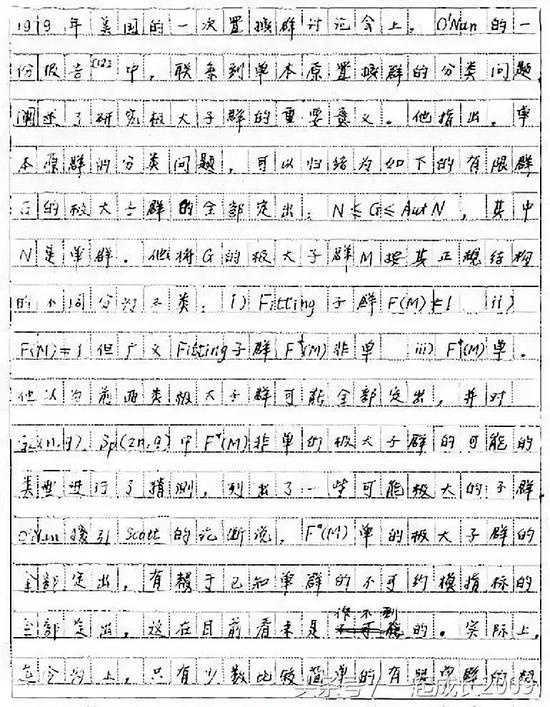 1979年美国的一次置换群讨论会上，O'Nan的一
份报告[12]中，联系到单本原置换群的分类问题
阐述了研究极大子群的重要意义。他指出，单
本原群的分类问题，可以归结为如下的有限群
G的极大子群的全部定出：N≤G≤AutN，其中
N是单群。他将G的极大子群M按其正规结构
的不同分为三类：i) Fitting子群F(M)≠1 ii)
F(M)=1但广义Fitting子群F*(M)非单 iii) F*(M)单。
他认为前两类极大子群可能全部定出，并对
(n,q)，Sp(2n,q)中F*(M)非单的极大子群的可能的
类型进行了猜测，列出了一些可能极大的子群。
O'Nan援引Scott的论断说，F*(M)单的极大子群的
全部定出，有赖于已知单群的不可约模指标的
全部定出，这在目前看来是做不到的。实际上，
至今为上，只有少数比较简单的有限单群的极
头条号/一起成长2009